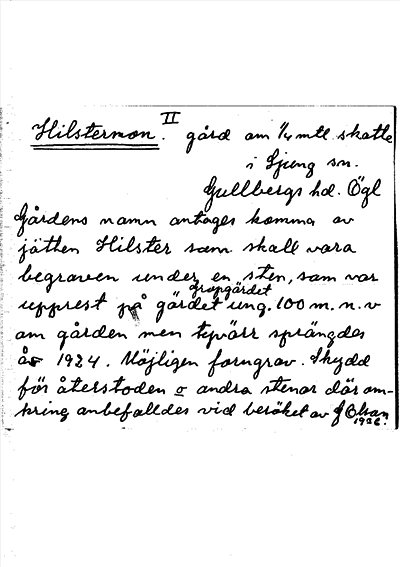 Hilstermon. II gård om 1/4 mtl skatte
i Ljung sn.
Gullbergs hd. Ögl
Gårdens namn antages komma av
jätten Hilster som skall vara
begraven under en sten, som var
upprest på gärdet Gropgärdet ung. 100 m. n. v
om gården men tyvärr sprängdes
år 1924. Möjligen forngrav. Skydd
för återstoden o andra stenar där om-
kring anbefalldes vid besöket av J Olsson
1926.